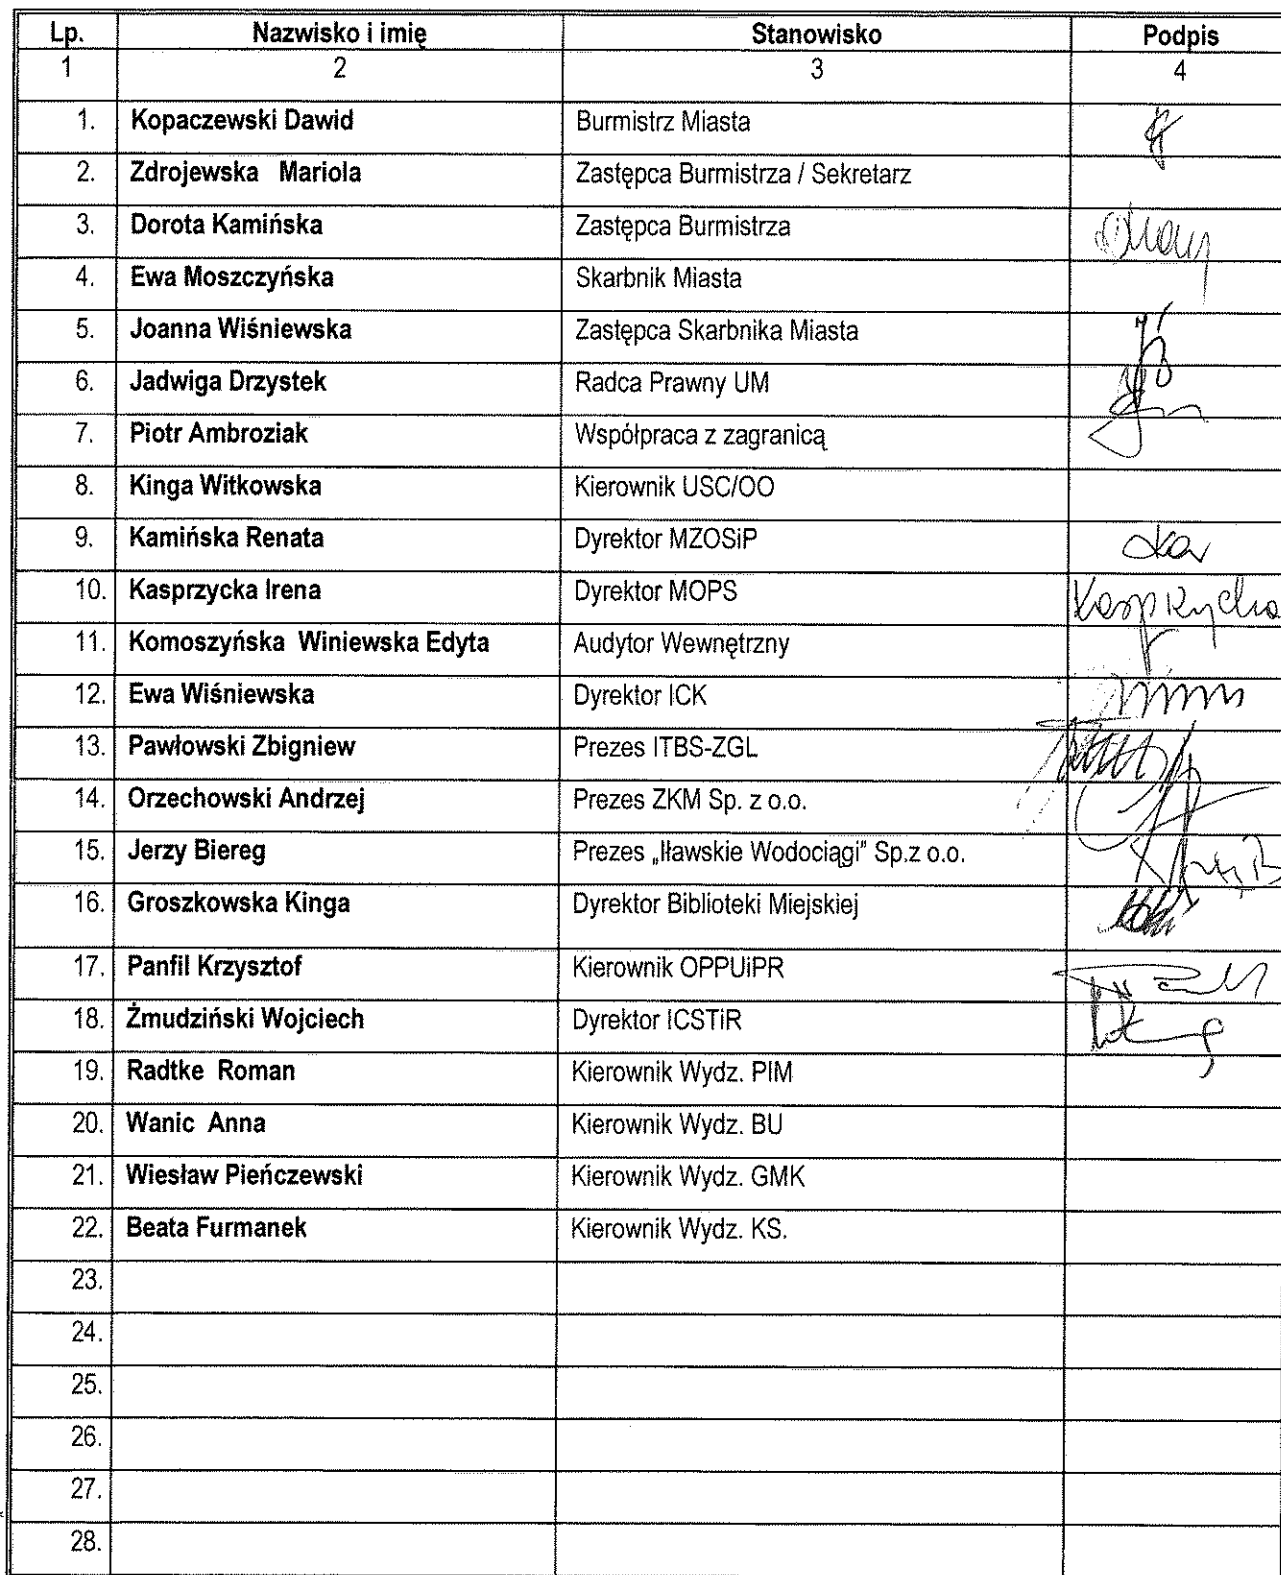 Lp. Nazwisko i imię Stanowisko Podpis
1 2 3 4
1. Kopaczewski Dawid Burmistrz Miasta
2. Zdrojewska Mariola Zastępca Burmistrza / Sekretarz
3. Dorota Kamińska Zastępca Burmistrza
4. Ewa Moszczyńska Skarbnik Miasta
5. Joanna Wiśniewska Zastępca Skarbnika Miasta
6. Jadwiga Drzystek Radca Prawny UM
7. Piotr Ambroziak Współpraca z zagranicą
8. Kinga Witkowska Kierownik USC/OO
9. Kamińska Renata Dyrektor MZOSiP
10. Kasprzycka Irena Dyrektor MOPS Kasprzycka
11. Komoszyńska Winiewska Edyta Audytor Wewnętrzny
12. Ewa Wiśniewska Dyrektor ICK
13. Pawłowski Zbigniew Prezes ITBS-ZGL
14. Orzechowski Andrzej Prezes ZKM Sp. z o.o.
15. Jerzy Biereg Prezes „Iławskie Wodociągi" Sp.z o.o.
16. Groszkowska Kinga Dyrektor Biblioteki Miejskiej
17. Panfil Krzysztof Kierownik OPPUiPR
18. Żmudziński Wojciech Dyrektor ICSTiR
19. Radtke Roman Kierownik Wydz. PIM
20. Wanic Anna Kierownik Wydz. BU
21. Wiesław Pieńczewski Kierownik Wydz. GMK
22. Beata Furmanek Kierownik Wydz. KS.
23.
24.
25.
26.
27.
28.